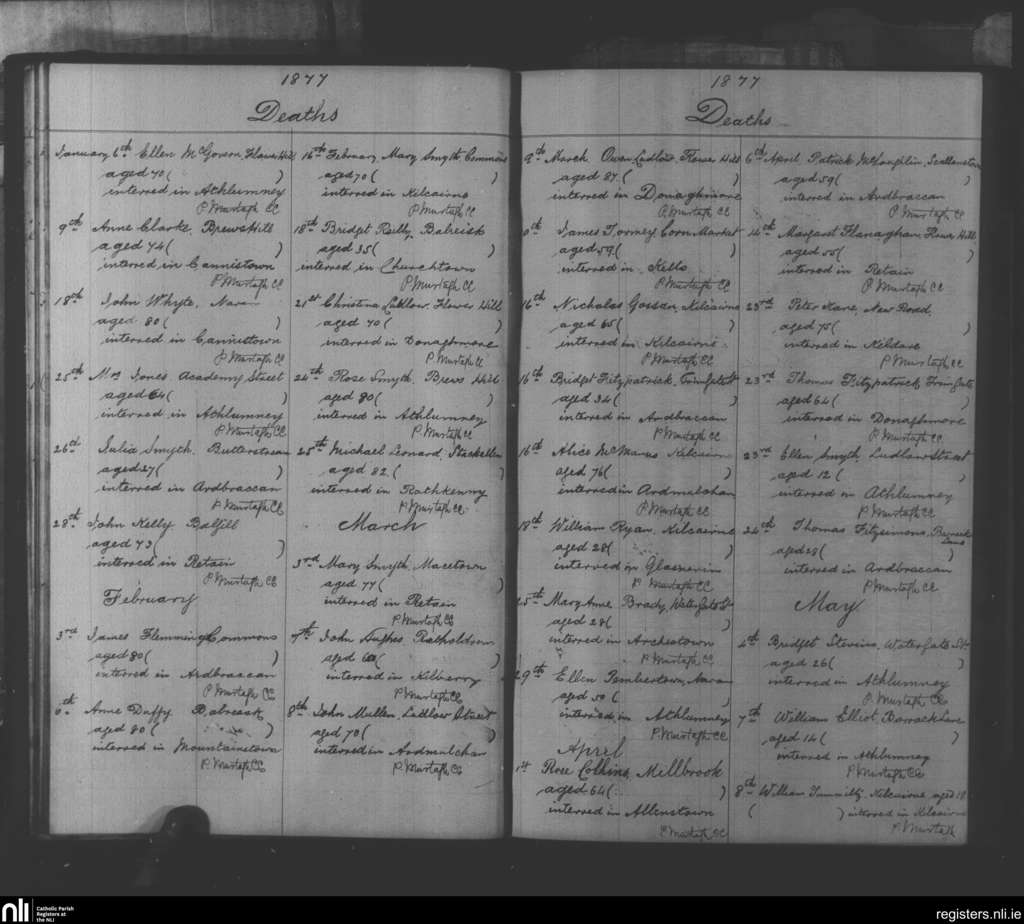 1877
Deaths
January 6th Ellen McGovern, Flower Hill
aged 70 ( )
interred in Athlumney
P Murtagh CC
9th Anne Clarke, Brews Hill
aged 74 ( )
interred in Cannistown
P Murtagh CC
18th John Whyte, Navan
aged 80 ( )
interred in Cannistown
P Murtagh CC
25th Mrs Jones, Academy Street
aged 64 ( )
interred in Athlumney
P Murtagh CC
26th Julia Smyth, Butterstream
aged 27 ( )
interred in Ardbraccan
P Murtagh CC
28th John Kelly
aged 73 ( )
interred in Retain
P Murtagh CC
February
3rd James Flemming Commons
aged 80 ( )
interred in Ardbraccan
P Murtagh CC
6th Anne Duffy Balreask
aged 80 ( )
interred in Mountainstown
P Murtagh CC
16th February Mary Smyth Commons
aged 70 ( )
interred in Kilcairne
P Murtagh CC
18th Bridget Reilly, Balreisk
aged 35 ( )
interred in Churchtown
P Murtagh CC
21st Christina Ludlow, Flower Hill
aged 70 ( )
interred in Donaghmore
P Murtagh CC
24th Rose Smyth, Brews Hill
aged 80 ( )
interred in Athlumney
P Murtagh CC
25th Michael Leonard, Stackallen
aged 82 ( )
interred in Rathkenny
P Murtagh CC
March
3rd Mary Smyth, Macetown
aged 77 ( )
interred in Retain
P Murtagh CC
7th John Hughes
aged ( )
interred in Kilberry
P Murtagh CC
8th John Mullen, Ludlow Street
aged 70 ( )
interred in Ardmulchan
P Murtagh CC
1877
Deaths
9th March Owen Ludlow, Flower Hill
aged 87 ( )
interred in Donaghmore
P Murtagh CC
James Tormey Corn Market
aged 59 ( )
interred in Kells
P Murtagh CC
16th Nicholas Gossan, Kilcairne
aged 65 ( )
interred in Kilcairne
P Murtagh CC
16th Bridget Fitzpatrick,
aged 34 ( )
interred in Ardbraccan
P Murtagh CC
16th Alice McManus Kilcairne
aged 76 ( )
interred in Ardmulchan
P Murtagh CC
18th William Ryan, Kilcairne
aged 28 ( )
interred in Glasnevin
P Murtagh CC
25th Mary Anne Brady, Watergate St
aged 28 ( )
interred in Arckestown
P Murtagh CC
29th Ellen Pembertown, Navan
aged 50 ( )
interred in Athlumney
P Murtagh CC
April
1st Rose Collins, Millbrook
aged 64 ( )
interred in Allenstown
P Murtagh CC
6th April Patrick McLoughlin, Scallanstown
aged 59 ( )
interred in Ardbraccan
P Murtagh CC
14th Margaret Flanaghan, Flower Hill
aged 55 ( )
interred in Retain
P Murtagh CC
23rd Peter Kane, New Road,
aged 75 ( )
interred in Kildare
P Murtagh CC
23rd Thomas Fitzpatrick, Trimgate
aged 64 ( )
interred in Donaghmore
P Murtagh CC
23rd Ellen Smyth, Ludlow Street
aged 12 ( )
interred in Athlumney
P Murtagh CC
24th Thomas Fitzsimons, Barrack
Lane
aged 28 ( )
interred in Ardbraccan
P Murtagh CC
May
4th Bridget Stevins, Watergate St
aged 26 ( )
interred in Athlumney
P Murtagh CC
7th William Elliot, Barrack Lane
aged 14 ( )
interred in Athlumney
P Murtagh CC
8th William Kilcairne aged 18
( ) interred in Kilcairne
P Murtagh
nli
Catholic Parish
Registers at
the NLI
registers.nli.ie